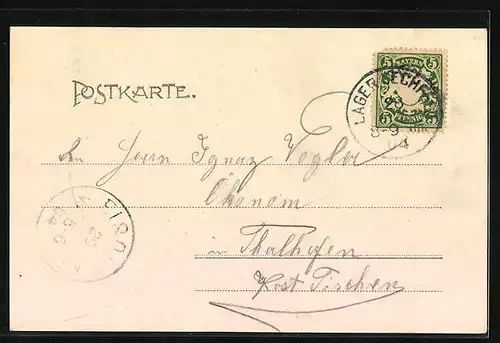 POSTKARTE.
BAYERN
5 5
5 5
PFENNIG
LAGER LECHFELD
8-9
04
An Herrn Ignaz Vogler
Ökonom
in Thalhofen
Post
20
5-6
04